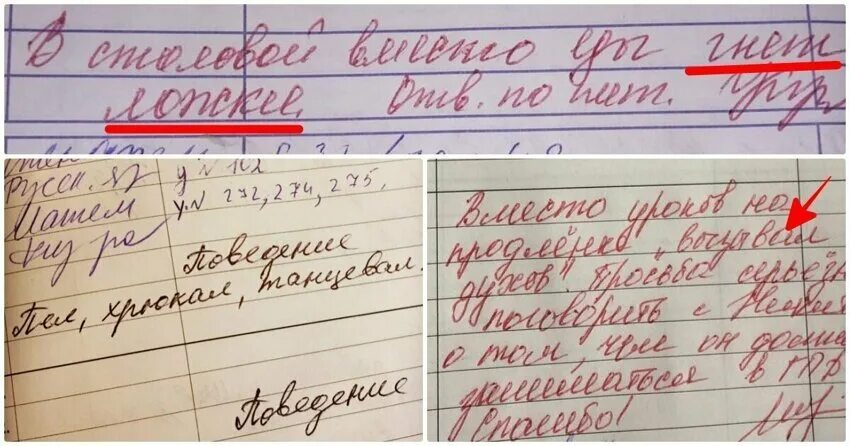 В столовой вместо еды гнет
ложки. Отв. по пит.
Русск. яз у № 102
Матем у. № 272, 274, 275.
Поведение
Пел, хрюкал, танцевал.
Поведение
Вместо уроков на
продлёнке „вызывал
духов". Просьба серьёзн
поговорить с
о том, чем он долж
заниматься в ГПД
Спасибо!